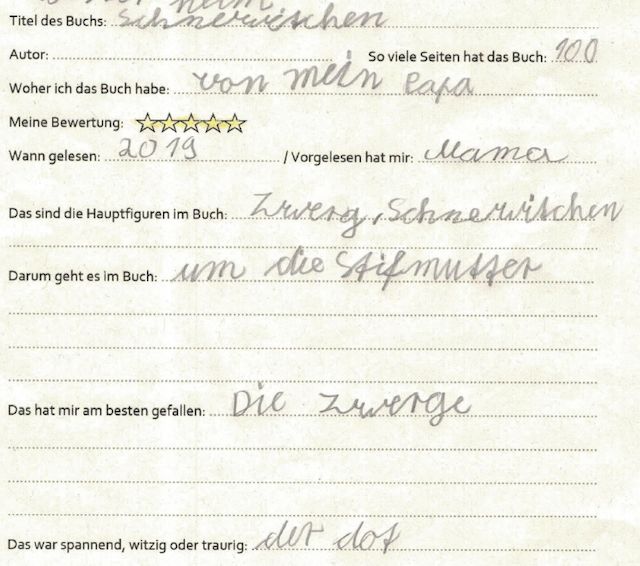 Titel des Buchs: Schnerwitschen
Autor: So viele Seiten hat das Buch: 100
Woher ich das Buch habe: von mein Papa
Meine Bewertung:
Wann gelesen: 2019 / Vorgelesen hat mir: Mama
Das sind die Hauptfiguren im Buch: Zwerg, Schnerwitschen
Darum geht es im Buch: um die Stifmutter
Das hat mir am besten gefallen: Die Zwerge
Das war spannend, witzig oder traurig: der dot